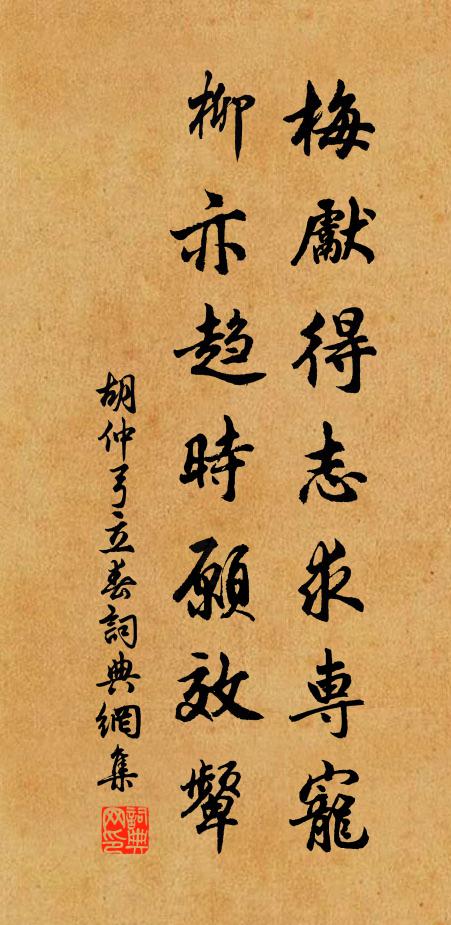 梅獻得志求專寵
柳亦趨時願效顰
胡仲弓立春詞典網集
詞典网印